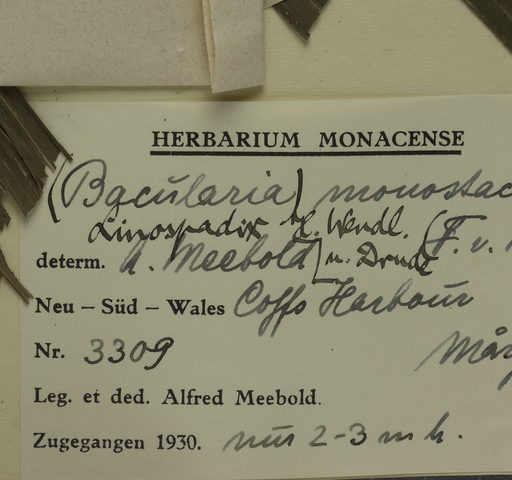 HERBARIUM MONACENSE
(Bacularia) monostac
Linospadix H. Wendl. (F. v.
determ. A. Meebold] u. Drude
Neu – Süd – Wales Coffs Harbour
Nr. 3309 März
Leg. et ded. Alfred Meebold.
Zugegangen 1930. nur 2-3 m h.